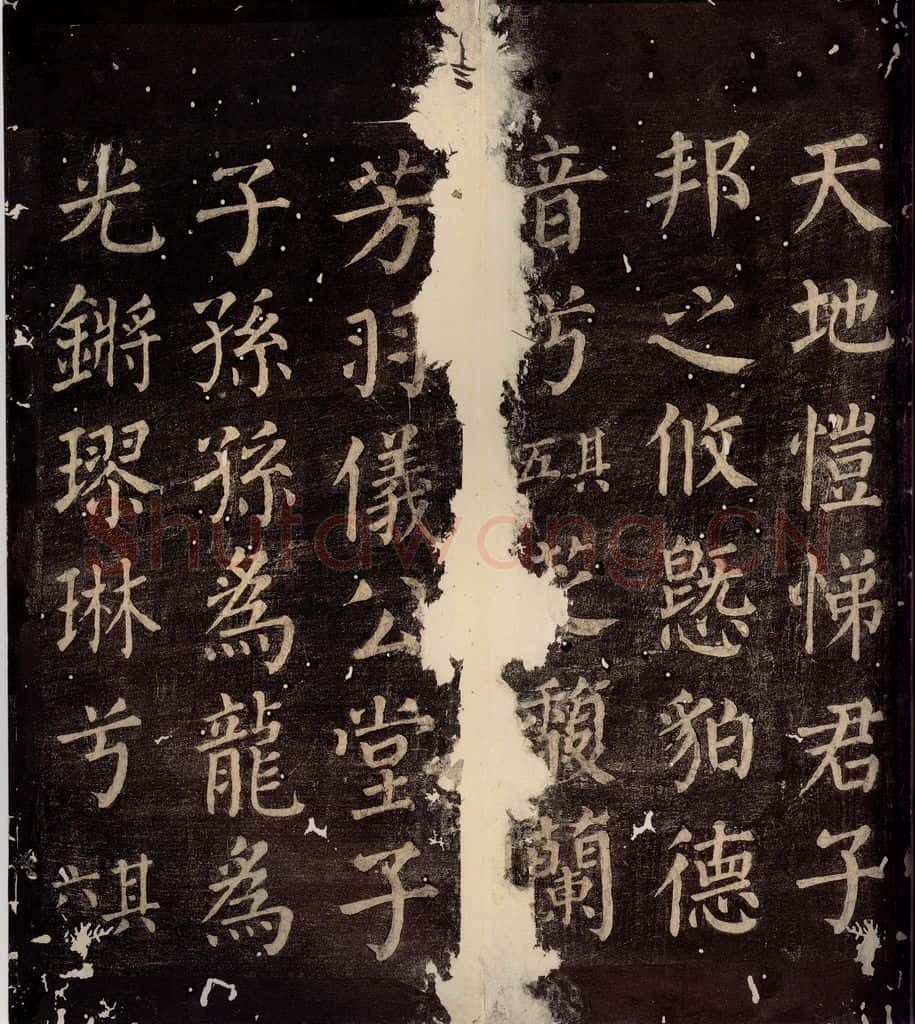 天地愷悌君子
邦之攸貊德
音兮其五芝馥蘭
芳羽儀公堂子
子孫孫為龍為
光鏘璆琳兮其六
Shufawang.CN